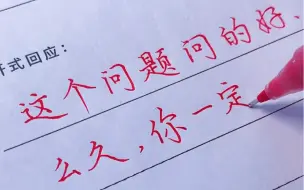 式回应：
这个问题问的好，
么久，你一定